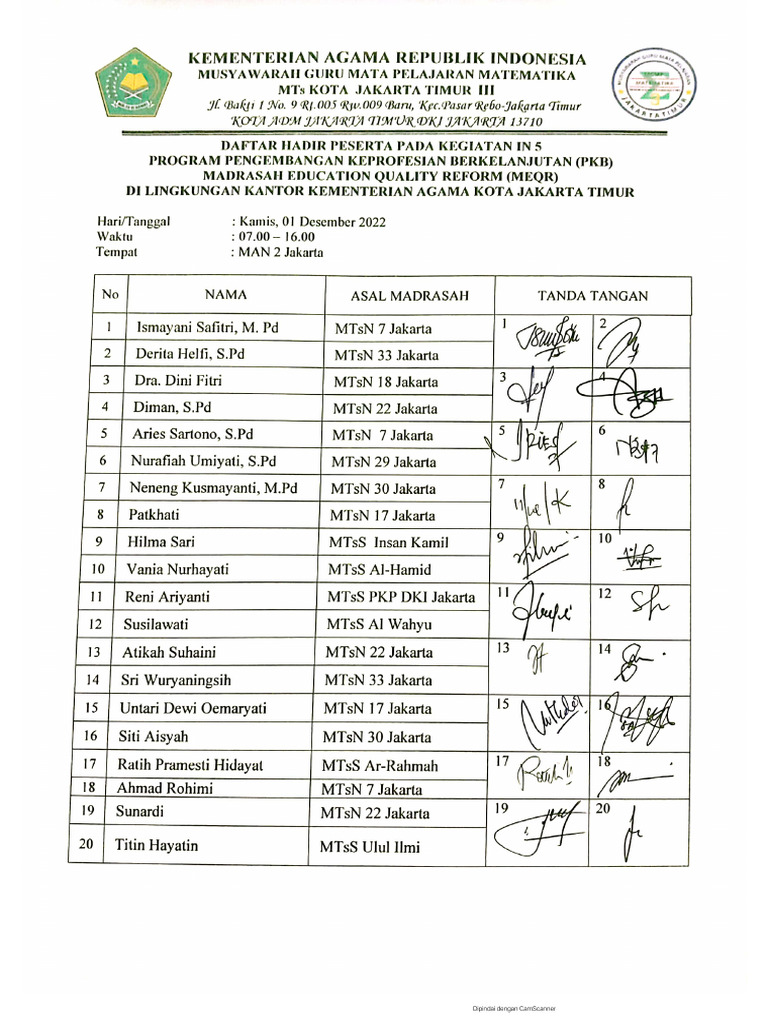 KEMENTERIAN AGAMA REPUBLIK INDONESIA
MUSYAWARAH GURU MATA PELAJARAN MATEMATIKA
MTs KOTA JAKARTA TIMUR III
Jl. Bakti 1 No. 9 Rt.005 Rw.009 Baru, Kec.Pasar Rebo-Jakarta Timur
KOTA ADM JAKARTA TIMUR DKI JAKARTA 13710
DAFTAR HADIR PESERTA PADA KEGIATAN IN 5
PROGRAM PENGEMBANGAN KEPROFESIAN BERKELANJUTAN (PKB)
MADRASAH EDUCATION QUALITY REFORM (MEQR)
DI LINGKUNGAN KANTOR KEMENTERIAN AGAMA KOTA JAKARTA TIMUR
Hari/Tanggal : Kamis, 01 Desember 2022
Waktu : 07.00 – 16.00
Tempat : MAN 2 Jakarta
No NAMA ASAL MADRASAH TANDA TANGAN
1 Ismayani Safitri, M. Pd MTsN 7 Jakarta 1 2
2 Derita Helfi, S.Pd MTsN 33 Jakarta
3 Dra. Dini Fitri MTsN 18 Jakarta 3 4
4 Diman, S.Pd MTsN 22 Jakarta
5 Aries Sartono, S.Pd MTsN 7 Jakarta 5 6
6 Nurafiah Umiyati, S.Pd MTsN 29 Jakarta
7 Neneng Kusmayanti, M.Pd MTsN 30 Jakarta 7 8
8 Patkhati MTsN 17 Jakarta
9 Hilma Sari MTsS Insan Kamil 9 10
10 Vania Nurhayati MTsS Al-Hamid
11 Reni Ariyanti MTsS PKP DKI Jakarta 11 12
12 Susilawati MTsS Al Wahyu
13 Atikah Suhaini MTsN 22 Jakarta 13 14
14 Sri Wuryaningsih MTsN 33 Jakarta
15 Untari Dewi Oemaryati MTsN 17 Jakarta 15 16
16 Siti Aisyah MTsN 30 Jakarta
17 Ratih Pramesti Hidayat MTsS Ar-Rahmah 17 18
18 Ahmad Rohimi MTsN 7 Jakarta
19 Sunardi MTsN 22 Jakarta 19 20
20 Titin Hayatin MTsS Ulul Ilmi
Dipindai dengan CamScanner